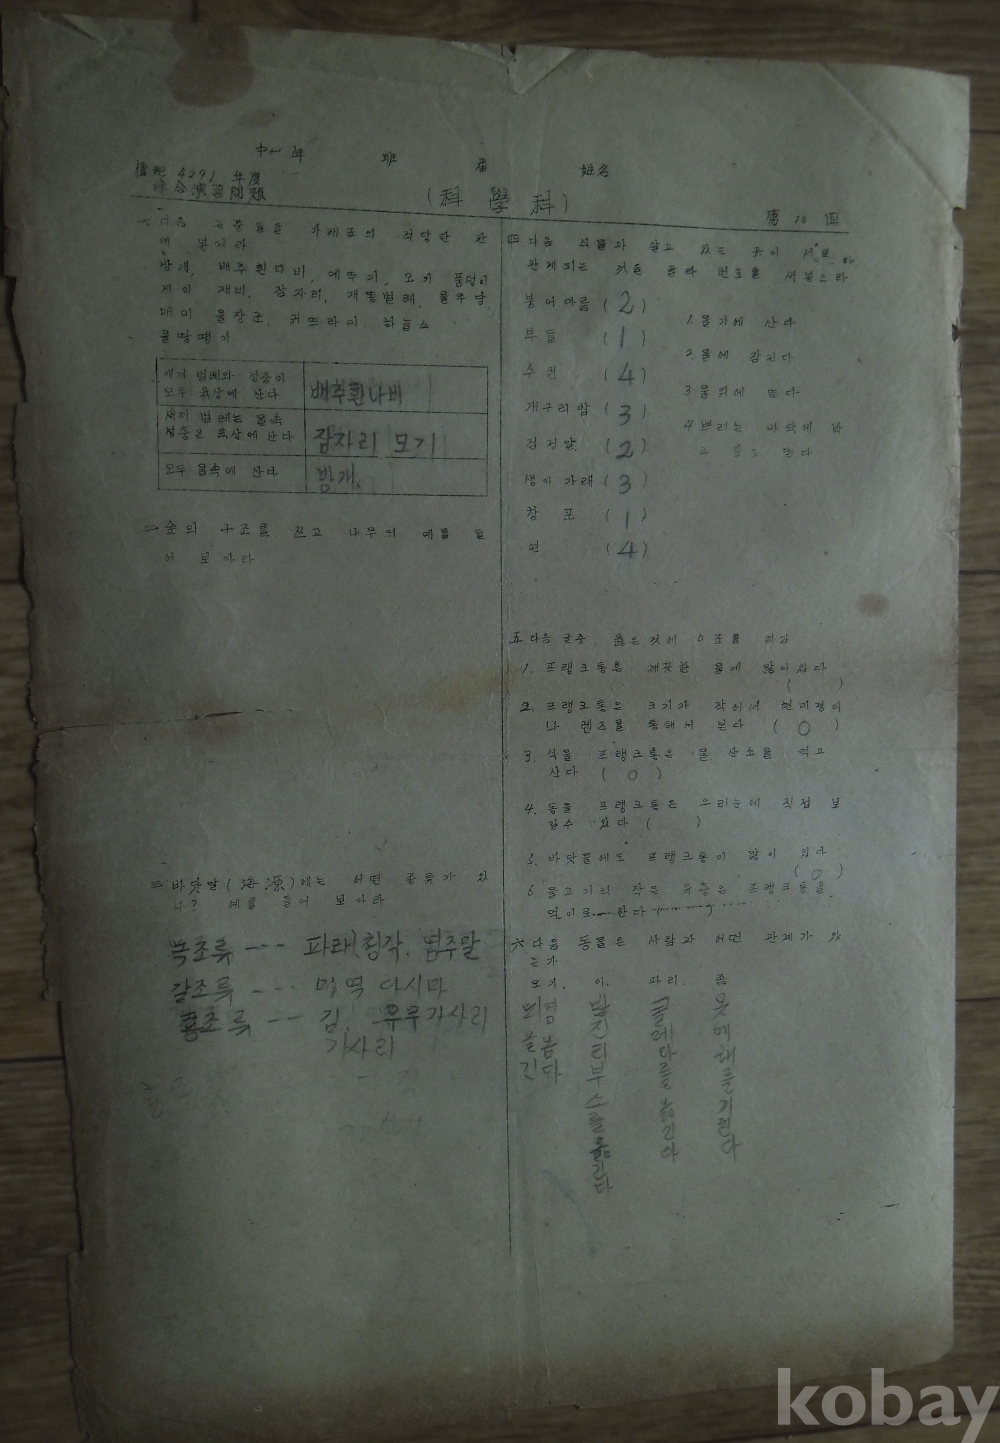 中一年 班 番 姓名
檀紀 4291 年度
綜合演習問題
(科學科)
第 回
一 다음 곤충들을 아래표의 적당한 칸
에 넣어라
방개, 배추흰나비, 메뚜기, 모기 풍덩이
잠자리, 개똥벌레, 물무당
매미 물장군, 귀뜨라미, 하늘소
물땅땡이
새끼 벌레와 성충이
모두 육상에 산다
배추흰나비
새끼 벌레는 물속
성충은 육상에 산다
잠자리 모기
모두 물속에 산다
방개.
二 숲의 구조를 쓰고 나무의 예를 들
어 보아라
三 바닷말(海源)에는 어떤 종류가 있
나? 예를 들어 보아라
녹조류 --- 파래, 청각, 넘주말
갈조류 --- 미역 다시마
홍조류 --- 김, 우무가사리
가사리
四 다음 식물과 살고 있는 곳이 서로
관계되는 것을 골라 번호를 써넣으라
붕어마름 (2)
부들 (1)
수련 (4)
개구리밥 (3)
검정말 (2)
생이가래 (3)
창포 (1)
연 (4)
1. 물가에 산다
2. 물에 잠긴다
3 물위에 뜬다
4 뿌리는 바닥에
뜬다
五 다음 글중 옳은 것에 O 표를 하라
1. 프랭크톤은 깨끗한 물에 많이 있다
( )
2. 프랭크톤은 크기가 작어서 현미경이
나 렌즈를 통해서 본다 ( O )
3. 식물 프랭크톤은 물, 산소를 먹고
산다 ( O )
4. 동물 프랭크톤은 우리눈에 직접 보
일수 있다 ( )
5. 바닷물에도 프랭크톤이 많이 있다
( O )
6 물고기의 작은 유충은 프랭크톤을
먹이로 한다
六 다음 동물은 사람과 어떤 관계가 있
는가
모기. 이. 파리. 좀
뇌염을 옮긴다
발진티부스를 옮긴다
콜레라를 옮긴다
옷에 해를 끼친다
kobay